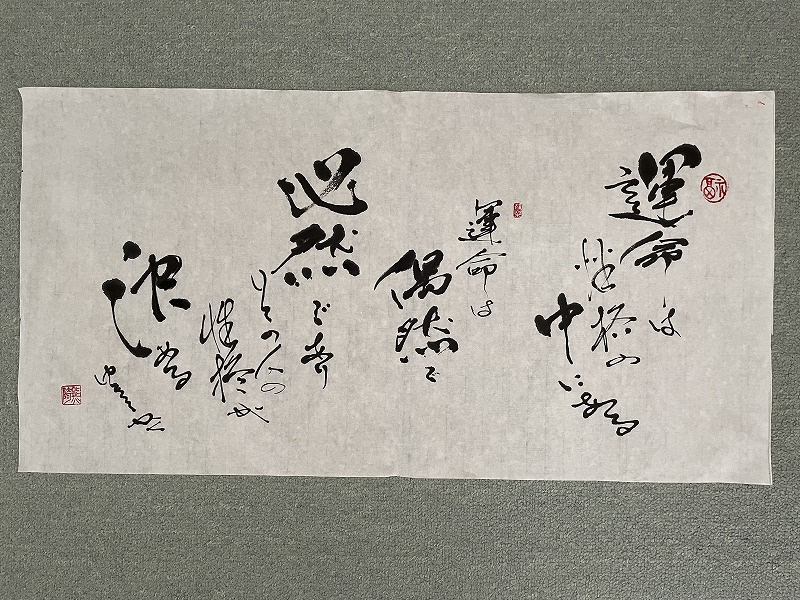 運命は
性格の
中にある
運命は
偶然で
必然であ
りその人の
性格が
決める